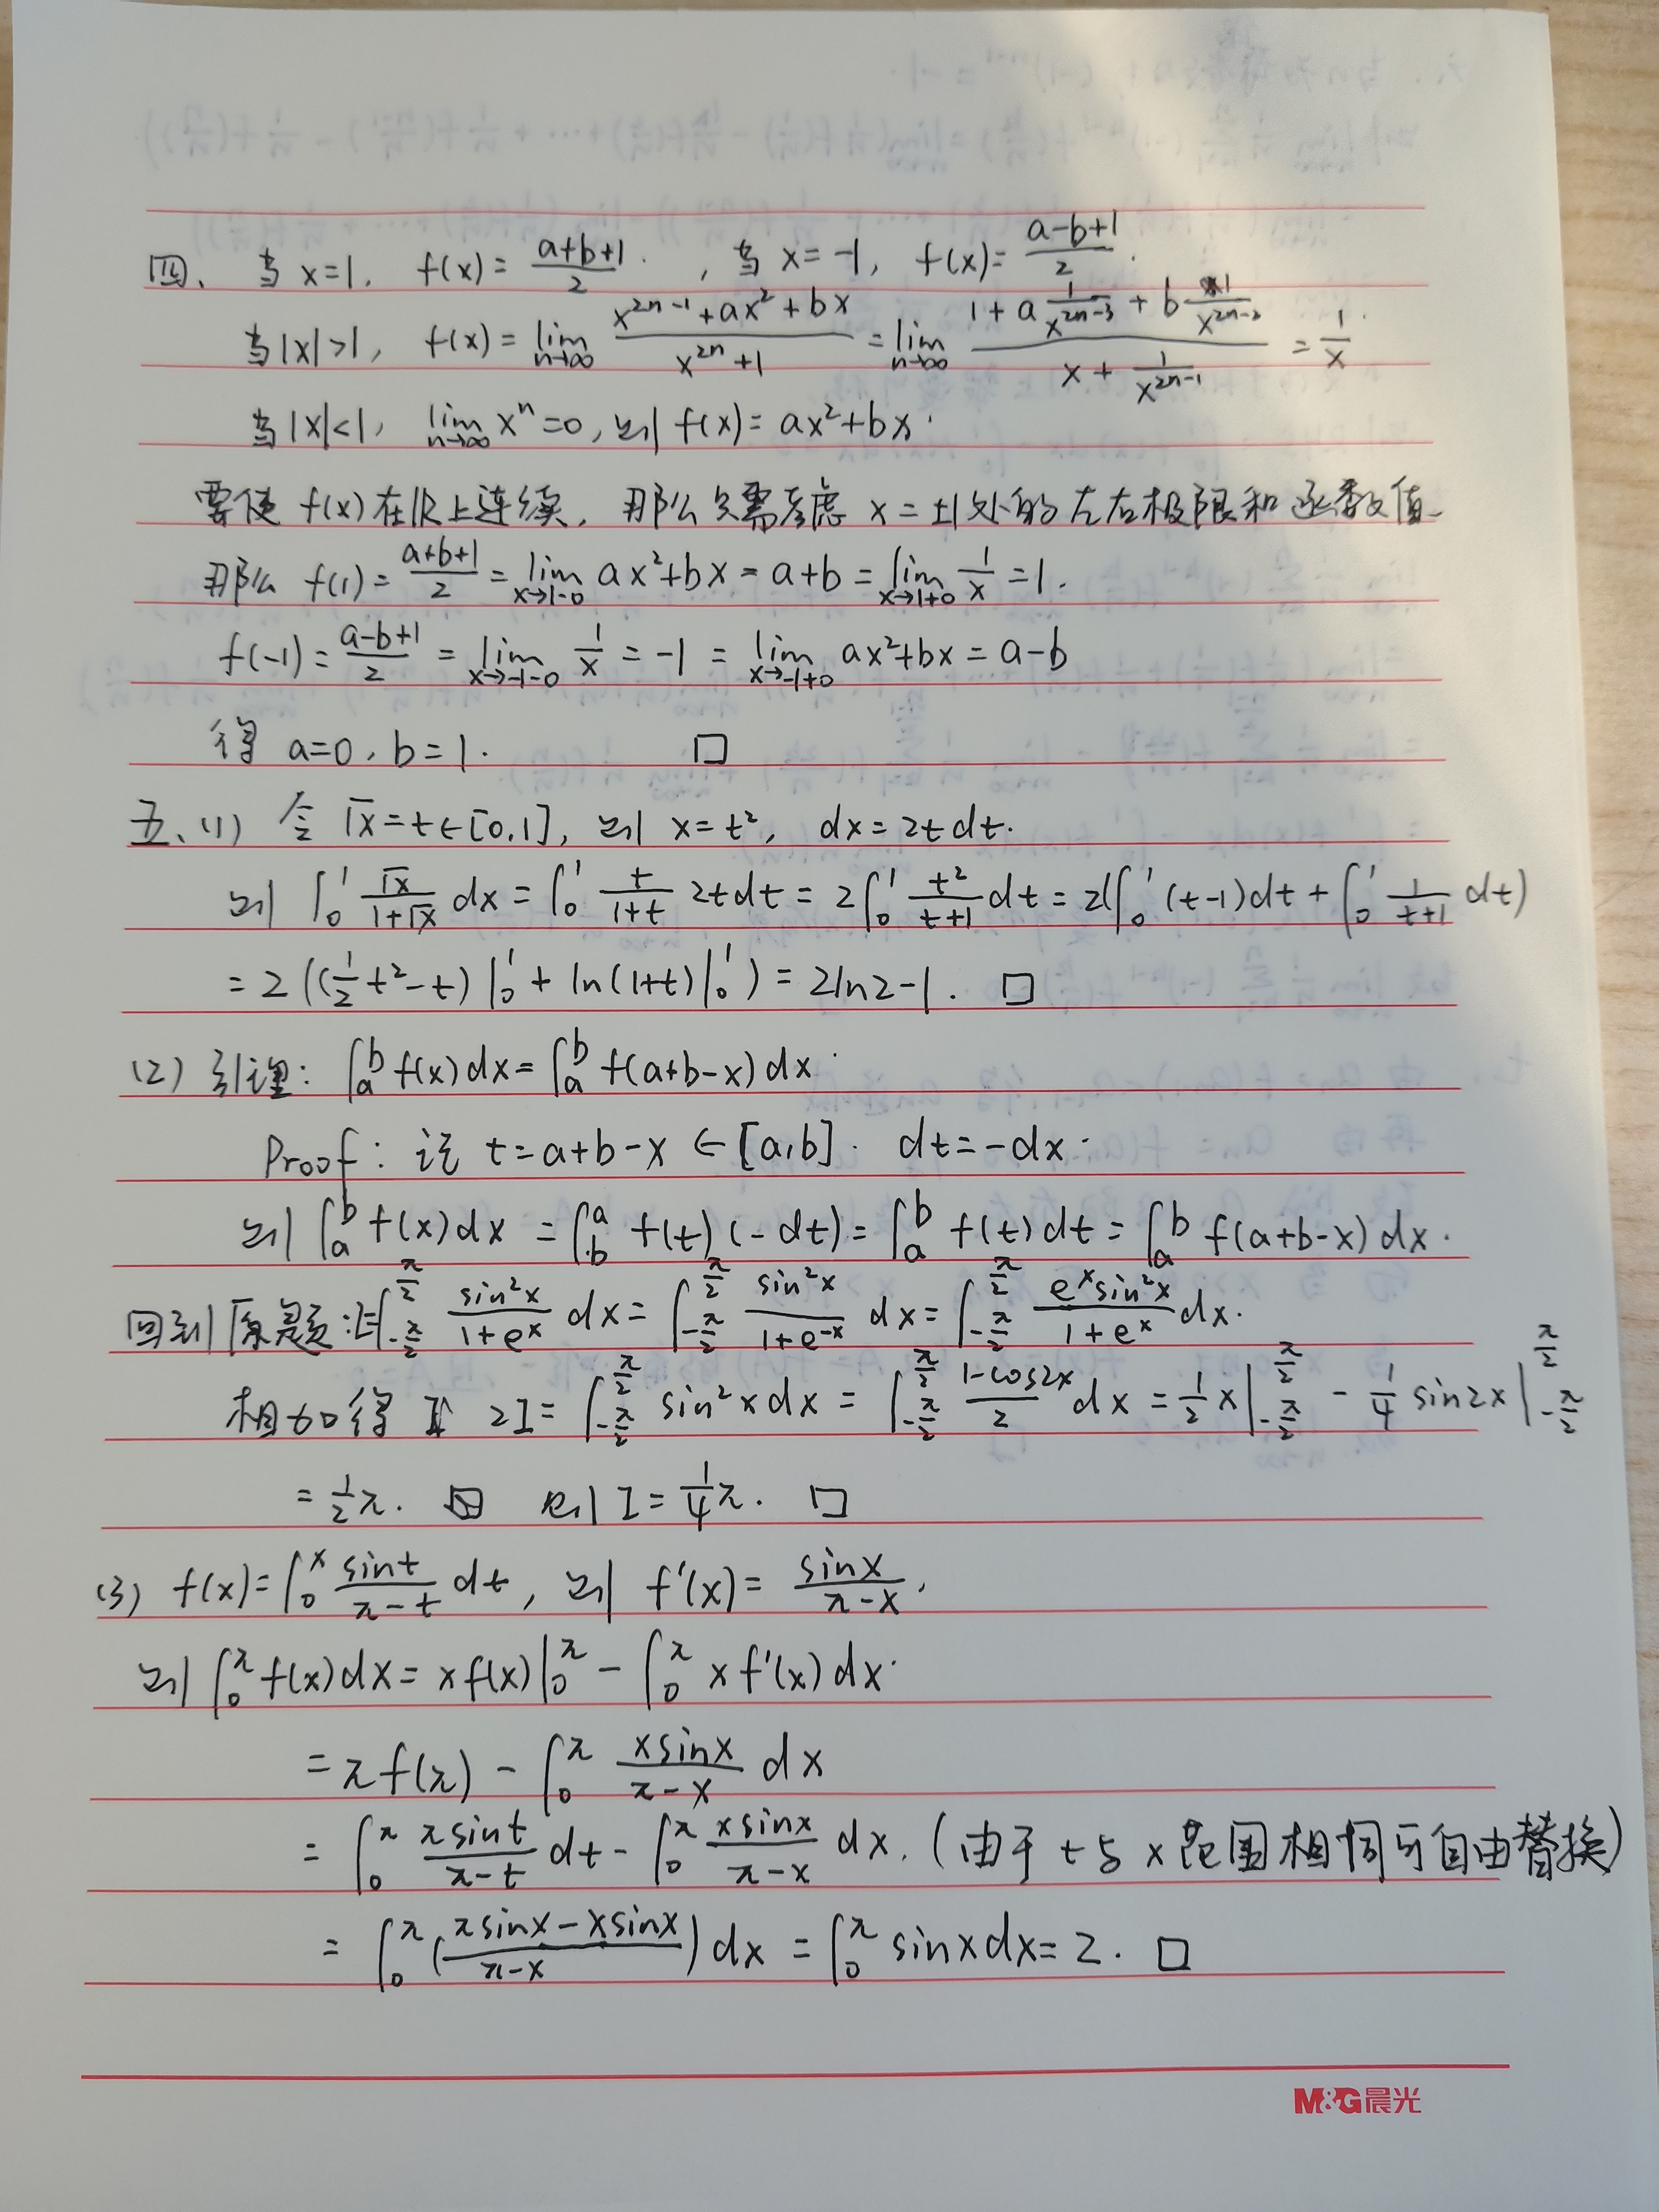 四、当 x=1, f(x)= \frac{a+b+1}{2}. , 当 x=-1, f(x)= \frac{a-b+1}{2}.
当|x|>1, f(x)= \lim_{n→∞} \frac{x^{2n-1}+ax^2+bx}{x^{2n}+1} = \lim_{n→∞} \frac{1+a\frac{1}{x^{2n-3}}+b\frac{1}{x^{2n-2}}}{x+\frac{1}{x^{2n-1}}} = \frac{1}{x}.
当|x|<1, \lim_{n→∞} x^n=0, 则 f(x)= ax^2+bx.
要使 f(x)在ℝ上连续, 那么只需考虑 x=±1处的左右极限和函数值
那么 f(1)= \frac{a+b+1}{2} = \lim_{x→1-0} ax^2+bx = a+b = \lim_{x→1+0} \frac{1}{x} = 1.
f(-1)= \frac{a-b+1}{2} = \lim_{x→-1-0} \frac{1}{x} = -1 = \lim_{x→-1+0} ax^2+bx = a-b
得 a=0, b=1. □
五、(1) 令 √x=t∈[0,1], 则 x=t^2, dx=2tdt.
则 ∫_0^1 \frac{√x}{1+√x} dx = ∫_0^1 \frac{t}{1+t} 2tdt = 2∫_0^1 \frac{t^2}{t+1} dt = 2(∫_0^1 (t-1)dt + ∫_0^1 \frac{1}{t+1} dt)
= 2((\frac{1}{2}t^2-t)|_0^1 + ln(1+t)|_0^1) = 2ln2-1. □
(2) 引理: ∫_a^b f(x)dx = ∫_a^b f(a+b-x)dx.
Proof: 记 t=a+b-x ∈[a,b]. dt=-dx.
则 ∫_a^b f(x)dx = ∫_b^a f(t)(-dt) = ∫_a^b f(t)dt = ∫_a^b f(a+b-x)dx.
回到原题: I=∫_{-\frac{π}{2}}^{\frac{π}{2}} \frac{sin^2x}{1+e^x} dx = ∫_{-\frac{π}{2}}^{\frac{π}{2}} \frac{sin^2x}{1+e^{-x}} dx = ∫_{-\frac{π}{2}}^{\frac{π}{2}} \frac{e^x sin^2x}{1+e^x} dx.
相加得 2I = ∫_{-\frac{π}{2}}^{\frac{π}{2}} sin^2xdx = ∫_{-\frac{π}{2}}^{\frac{π}{2}} \frac{1-cos2x}{2} dx = \frac{1}{2}x|_{-\frac{π}{2}}^{\frac{π}{2}} - \frac{1}{4}sin2x|_{-\frac{π}{2}}^{\frac{π}{2}}
= \frac{1}{2}π. 则 I=\frac{1}{4}π. □
(3) f(x)=∫_0^x \frac{sint}{π-t} dt, 则 f'(x)= \frac{sinx}{π-x},
则 ∫_0^π f(x)dx = xf(x)|_0^π - ∫_0^π xf'(x)dx.
= πf(π) - ∫_0^π \frac{xsinx}{π-x} dx
= ∫_0^π \frac{πsint}{π-t} dt - ∫_0^π \frac{xsinx}{π-x} dx. (由于t与x范围相同可自由替换)
= ∫_0^π (\frac{πsinx-xsinx}{π-x}) dx = ∫_0^π sinxdx = 2. □
M&G晨光